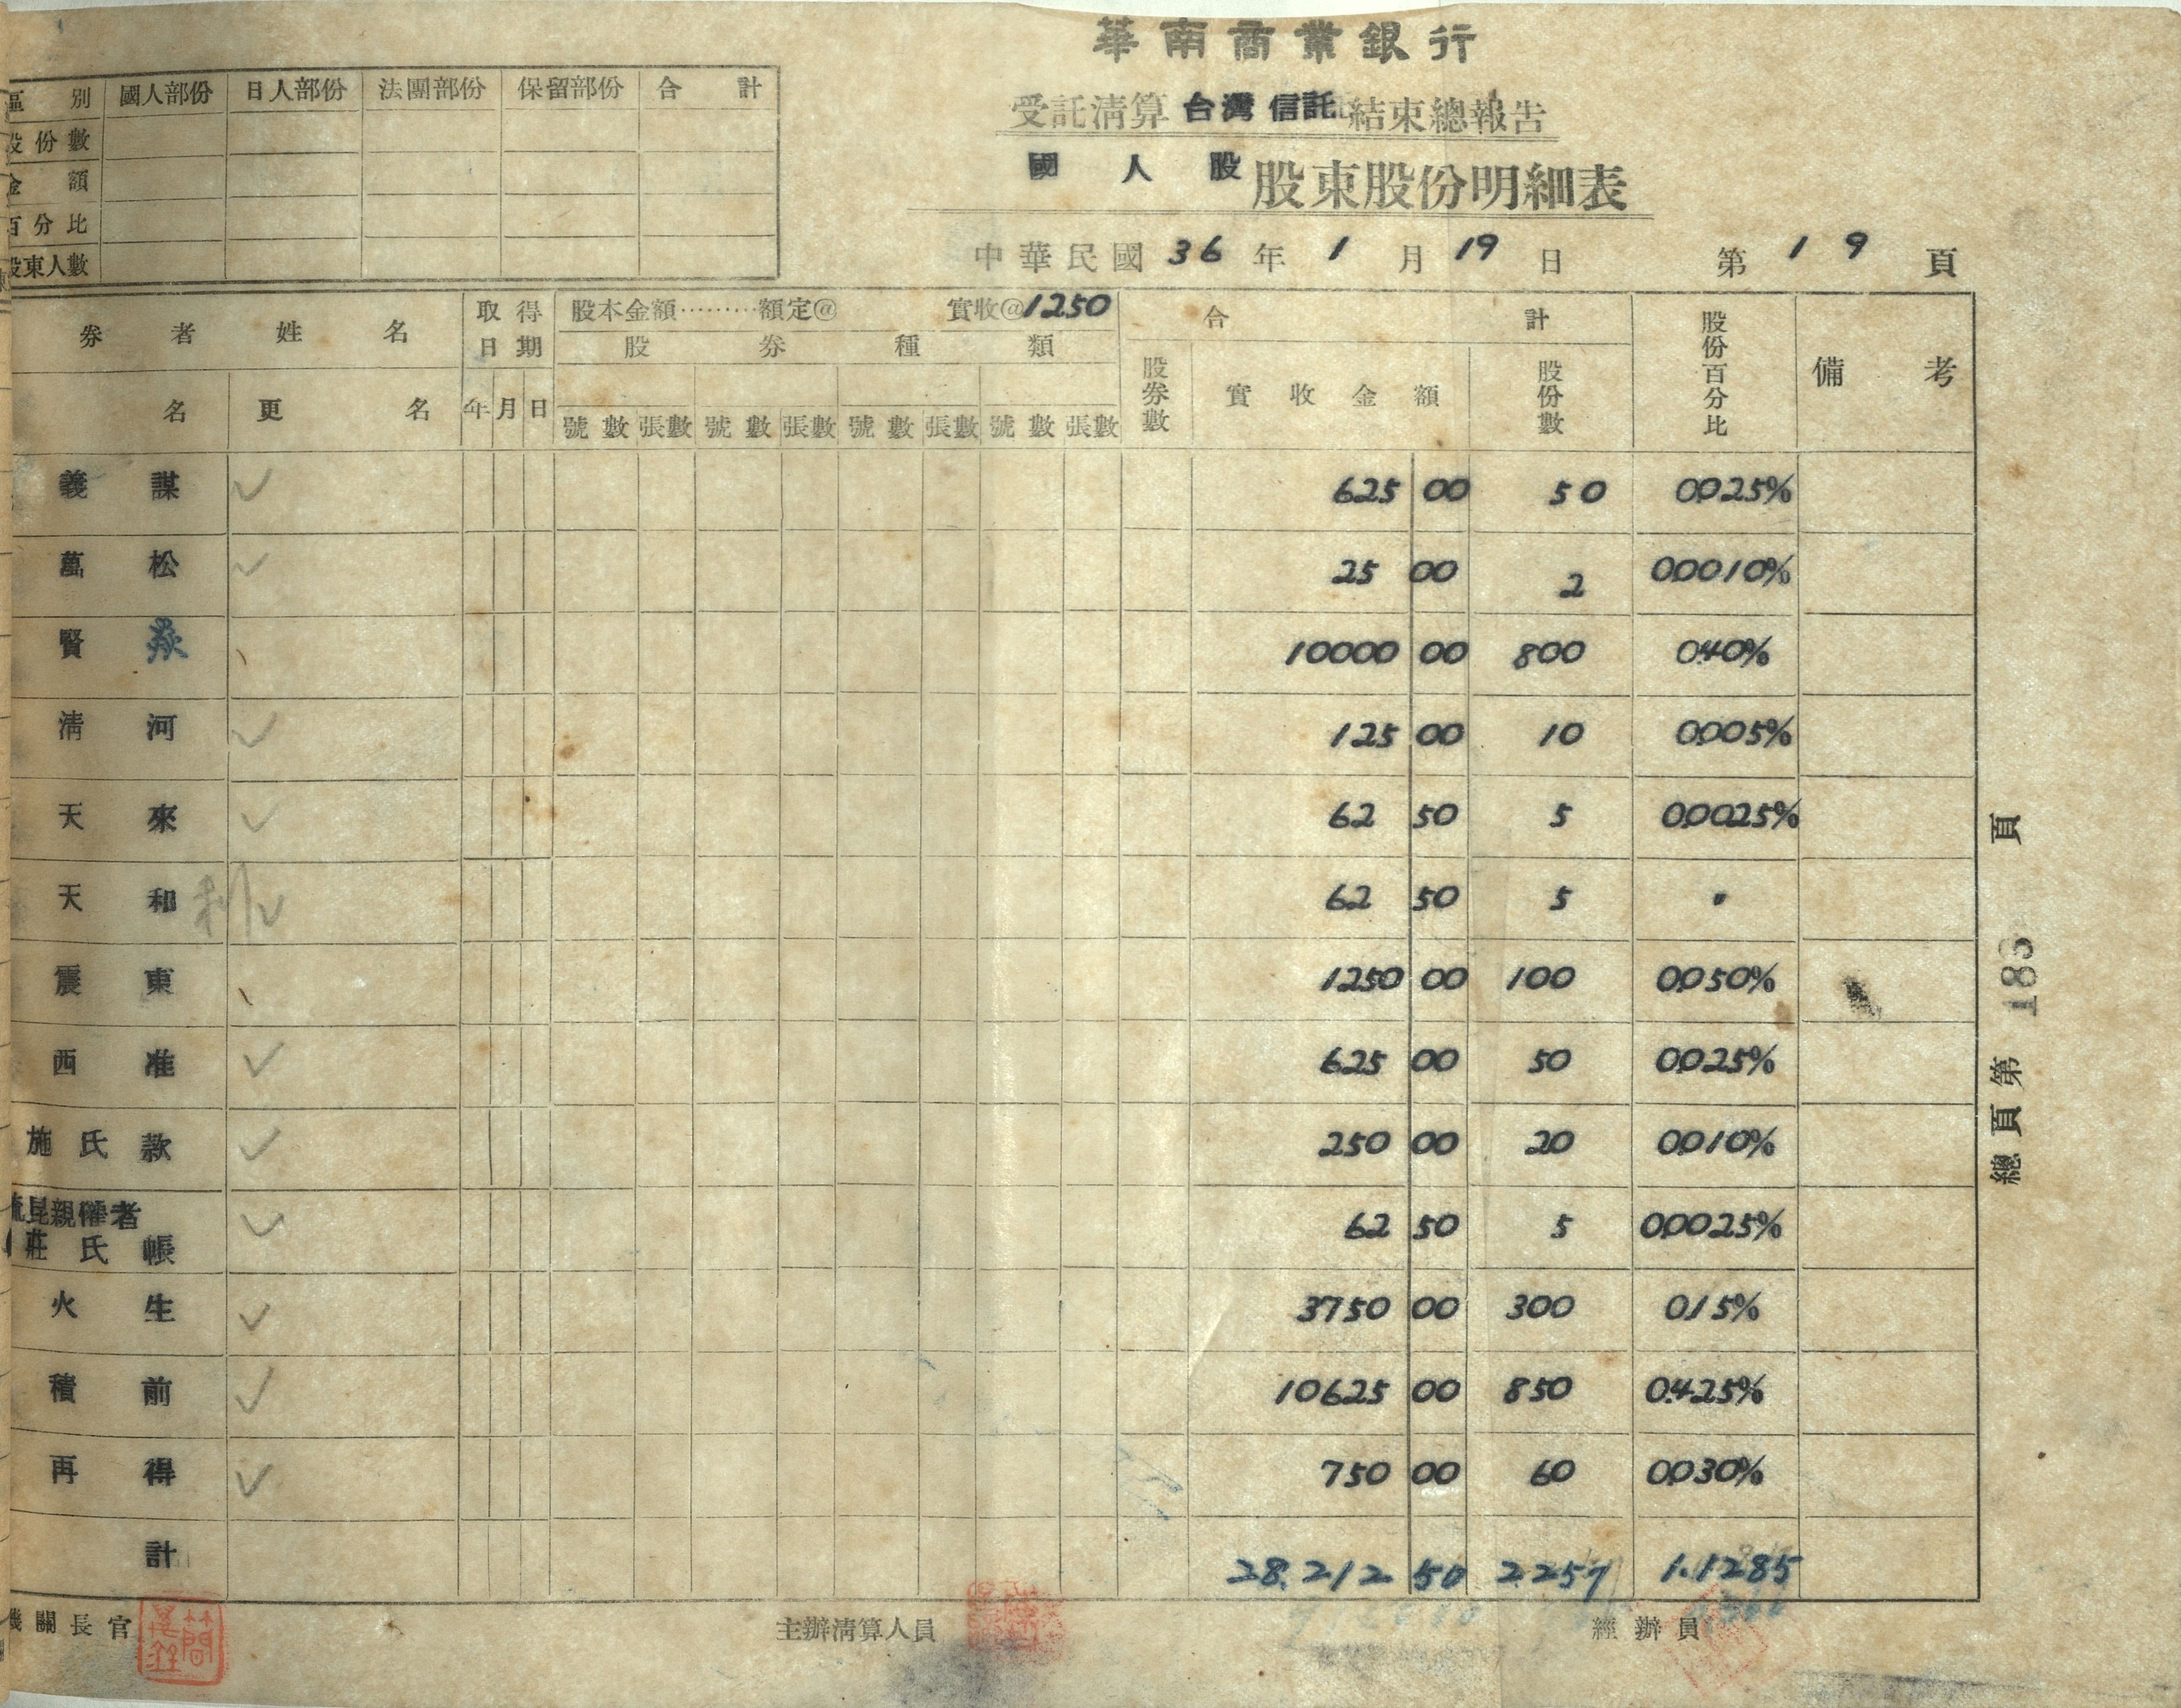 華南商業銀行
受託清算台灣信託結束總報告
國人股股東股份明細表
中華民國36年1月19日 第19頁
區別 國人部份 日人部份 法團部份 保留部份 合計
股份數
金額
百分比
股東人數
券者姓名 取得日期 股本金額………額定@ 實收@1250 合計 股份百分比 備考
股券種類
名 更名 年 月 日 號數 張數 號數 張數 號數 張數 號數 張數 股券數 實收金額 股份數
義謀 625 00 50 0.025%
萬松 25 00 2 0.0010%
賢 10000 00 800 0.40%
清河 125 00 10 0.005%
天來 62 50 5 0.0025%
天和 62 50 5 〃
震東 1250 00 100 0.050%
西准 625 00 50 0.025%
施氏款 250 00 20 0.010%
親權者
莊氏帳 62 50 5 0.0025%
火生 3750 00 300 0.15%
積前 10625 00 850 0.425%
再得 750 00 60 0.030%
計 28.212 50 2.257 1.1285
機關長官 主辦清算人員 經辦員
總頁第 183 頁